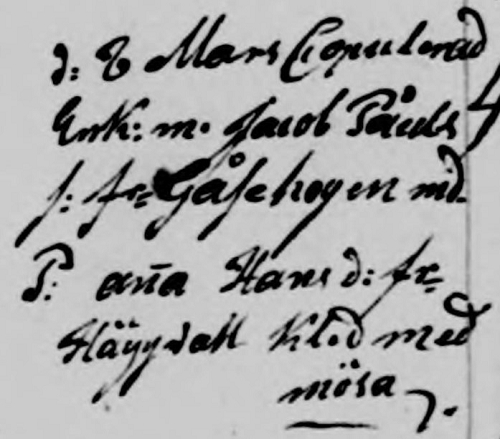 d: 8 Mars Copulerad
Enk: m. Jacob Påels
s: fr. Gåsehogen md.
P: aña Hans d: fr.
Häggvall Klöd med
mösa